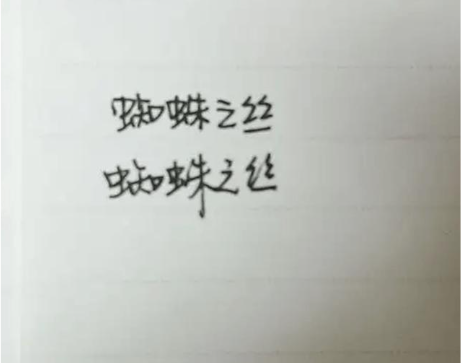 蜘蛛之丝
蜘蛛之丝